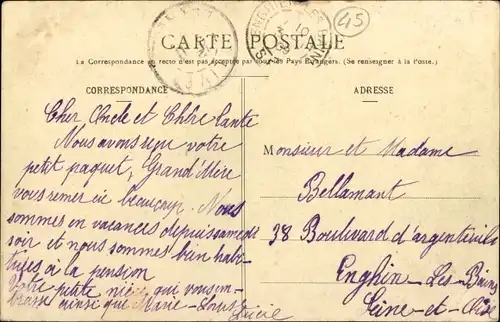 45
CARTE POSTALE
La Correspondance au recto n'est pas acceptée par tous les Pays Étrangers. (Se renseigner à la Poste.)
CORRESPONDANCE
Cher Oncle et Chère Tante
Nous avons reçu votre
petit paquet, Grand'Mère
vous remercie beaucoup. Nous
sommes en vacances depuis samedi
soir et nous sommes bien habi-
tuées à la pension
Votre petite nièce qui vous em-
brasse ainsi que Marie-Louise
Lucie
ADRESSE
Monsieur et Madame
Bellamant
38 Boulevard d'argenteuil
Enghin-Les-Bains
Seine-et-Oise